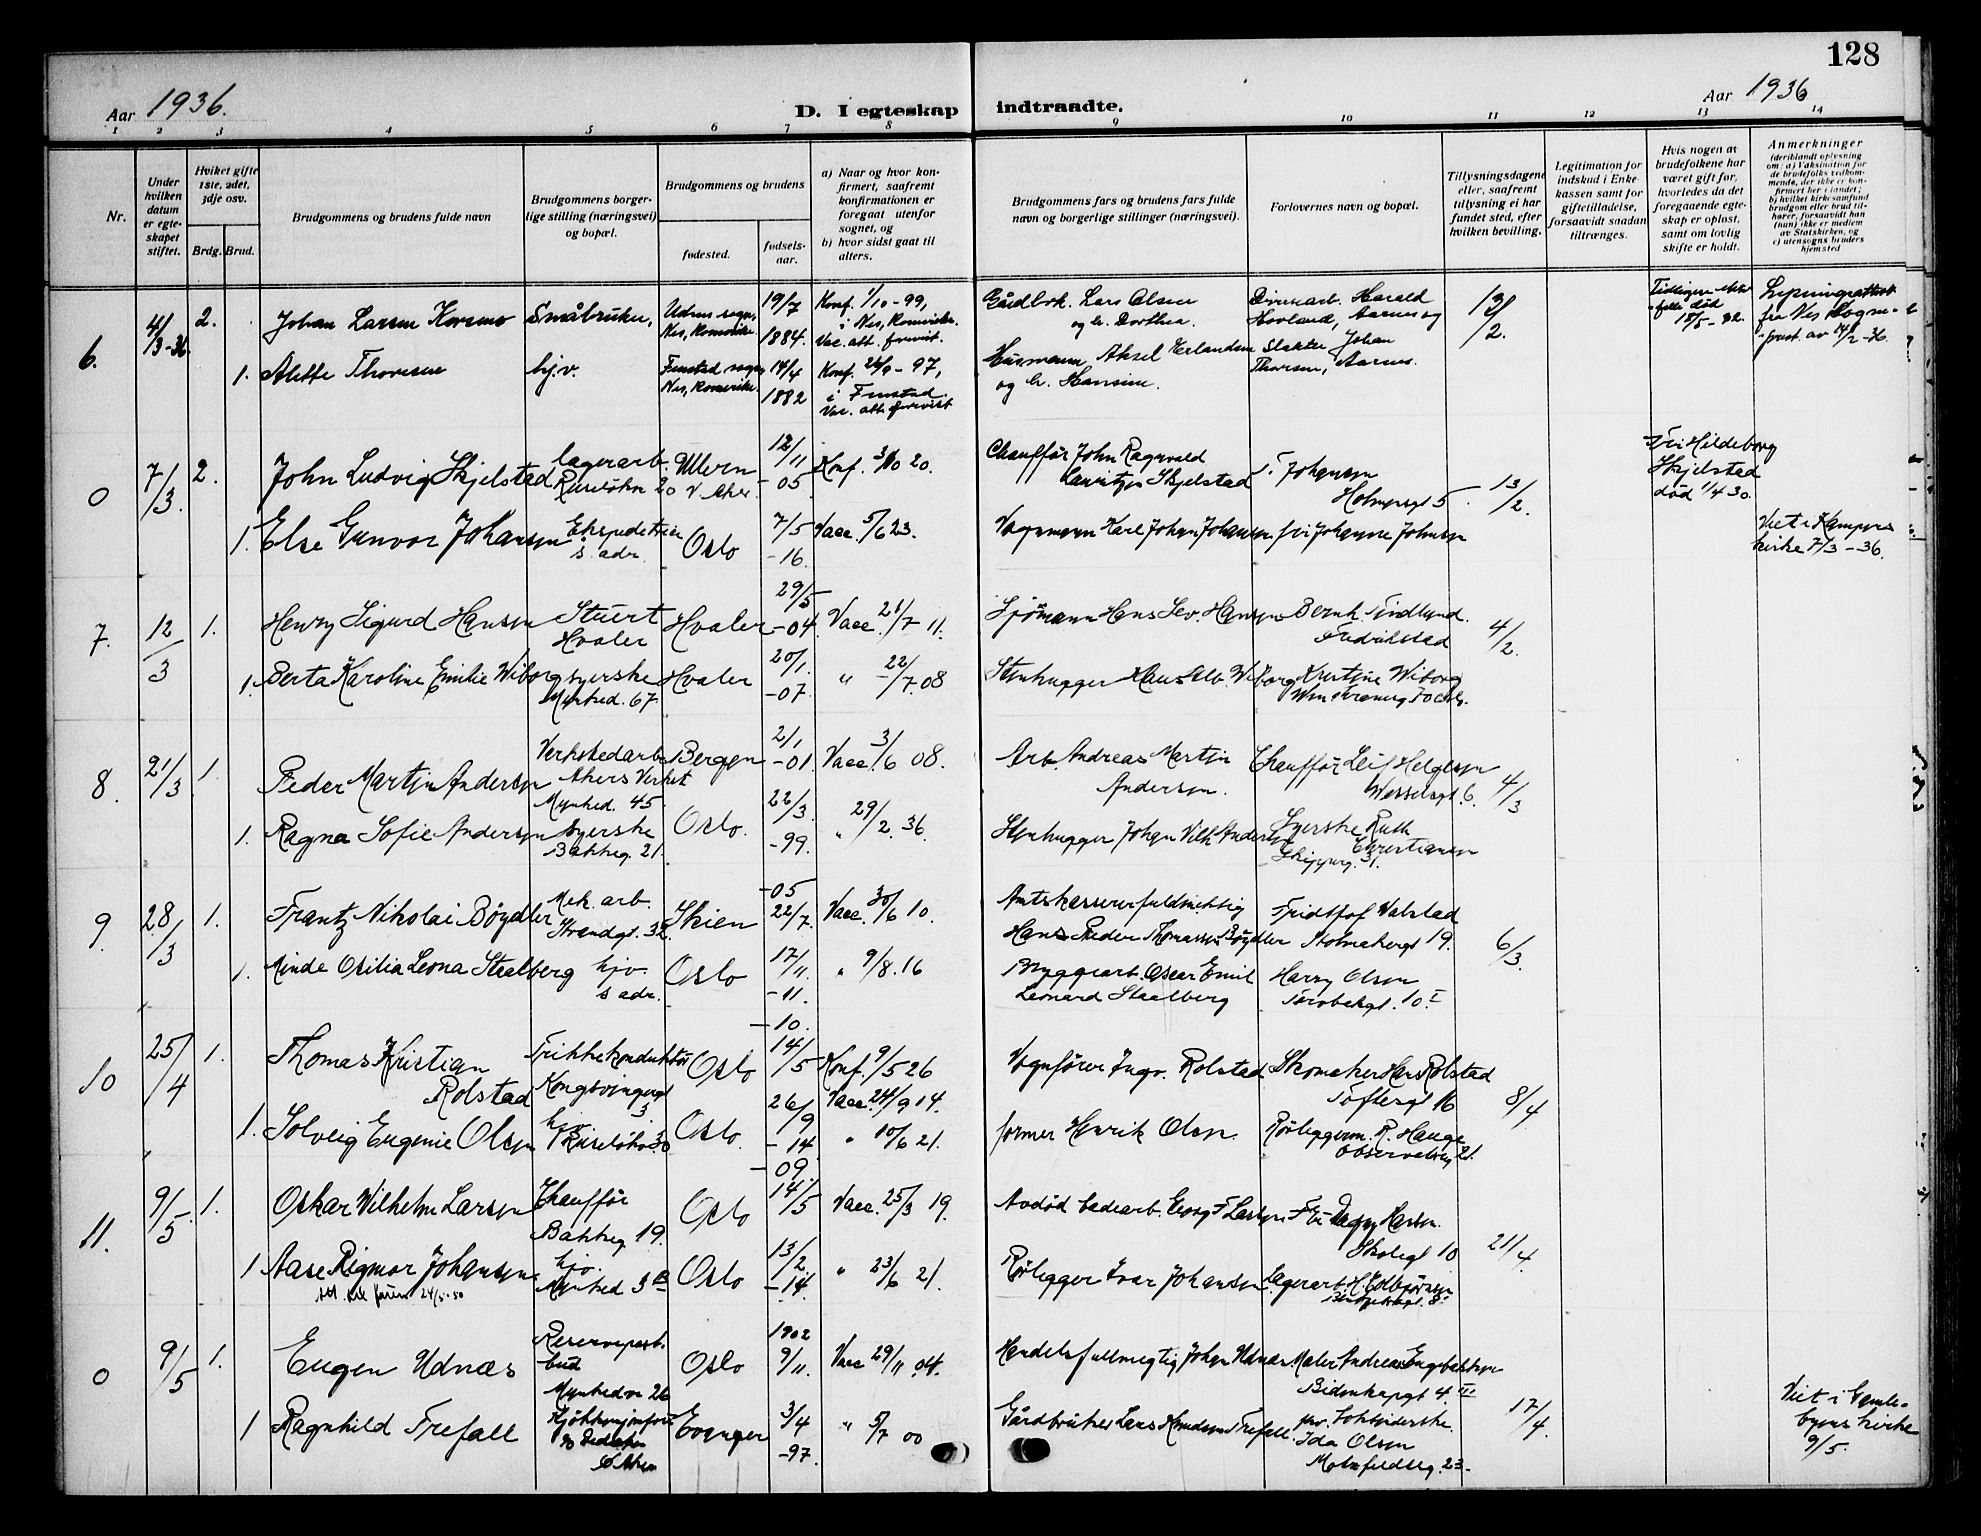 128
Aar 1936.
D. I egteskap indtraadte.
Aar 1936
1 2 3 4 5 6 7 8 9 10 11 12 13 14
Nr.
Under hvilken datum er egteskapet stiftet.
Hvilket gifte 1ste, 2det, 3dje osv.
Brdg. Brud.
Brudgommens og brudens fulde navn
Brudgommens borgerlige stilling (næringsvei) og bopæl.
Brudgommens og brudens
fødested.
fødselsaar.
a) Naar og hvor konfirmert, saafremt konfirmationen er foregaat utenfor sognet, og
b) hvor sidst gaat til alters.
Brudgommens fars og brudens fars fulde navn og borgerlige stillinger (næringsvei).
Forlovernes navn og bopæl.
Tillysningsdagene eller, saafremt tillysning ei har fundet sted, efter hvilken bevilling.
Legitimation for indskud i Enkekassen samt for giftetilladelse, forsaavidt saadan tiltrænges.
Hvis nogen av brudefolkene har været gift før, hvorledes da det foregaaende egteskap er opløst, samt om lovlig skifte er holdt.
Anmerkninger
(deriblandt oplysning om: a) Vaksination for de brudefolks vedkommende, der ikke er konfirmert her i landet; b) hvilket kirkesamfund brudgom eller brud tilhører, forsaavidt han (hun) ikke er medlem av Statskirken, og c) utensogns bruders hjemsted
6. 4/3-36. 2. Johan Larsen Korsmo Småbruker, Udnes sogn, Nes, Romerike 19/7 1884. Konf. 1/10-99, i Nes, Romerike. Vac. att. forevist.
Gårdbrk. Lars Olsen og h. Dorthea. Harald Hovland, Aarnes og
1. Alette Thoresen hj.v. Fenstad sogn, Nes, Romerike 14/4 1882 Konf. 26/9-97, i Fenstad. Vac. att. forevist
Husmann Aksel Erlandsen og h. Hansine. Slakter Johan Thorsen, Aarnes.
0 7/3. 2. John Ludvig Skjelstad lagerarb. Ruseløkn 20 Ullern V. Aker. 12/11 -05 Konf. 3/10 20.
Chauffør John Ragnvald Lauritzen Skjelstad T. Johansen Holmensgt 5. 13/2.
Fru Hildeborg Skjelstad død 1/4 30.
1. Else Gunvor Johansen Ekspeditrise s. adr. Oslo 7/5 -16. Vacc. 5/6 23.
Vognmann Karl Johan Johansen fru Johanne Johnsen
Viet i Kampens kirke 7/3-36.
7. 12/3 1. Henry Sigurd Hansen Stuert Hvaler Hvaler 29/5 -04. Vacc. 21/7 11.
Sjømann Hans Sev. Hansen Bernh. Findlund. Fredrikstad 4/2.
1. Berta Karoline Emilie Wiborg syerske 67. Hvaler 20/1. -07. " 22/7 08
Stenhugger Hans Alb. Wiborg Kristine Wiborg
8. 21/3 1. Peder Martin Andersen Verkstedarb. Akers Verkst Mynhed. 45 Bergen 2/1 -01. Vacc. 3/6 08.
Arb. Andreas Martin Andersen. Chauffør Leif Helgesen Wesselsgt. 6. 4/3
1. Ragna Sofie Andersen Syerske Bakkeg. 21. Oslo. 22/3 -99. " 29/2. 36.
Stenhugger Johan Vilh. Andersen Syerske Ruth Christiansen Skipperg. 31.
9. 28/3 1. Frantz Nikolai Bøydler Mek. arb. Strandgt. 32. Skien -05 22/7. Vacc. 30/6 10.
Amtskassererfuldmektig Hans Peder Thomassen Bøydler Fridtjof Walstad 19. 6/3.
1. Minde Osilia Leona Staalberg hjv. s adr. Oslo 17/11. -11. " 9/8. 16
Byggearb. Oscar Emil Leonard Staalberg Harry Olsen 10. I
10 25/4 1. Thomas Kristian Rolstad Trikkekonduktør Kongsvingergt 3 Oslo -10. 14/5 Konf. 9/5 26 Vacc. 24/9 14.
Vognfører Ingv. Rolstad Skomaker Hans Rolstad Toftesgt 16 8/4.
1. Solveig Eugenie Olsen hjv. Ruseløkv. 30 Oslo. 26/9 -14 " 10/6 21.
former Henrik Olsen. Rørleggerm. R. Hauge Observatorieg 21.
11. 9/5. 1. Oskar Wilhelm Larsen Chauffør Bakkeg 19. Oslo -09. 14/5 Vacc. 25/3 19.
Avdød badearb. Georg F. Larsen Fru Dagny Hansen. Skolegt 10 21/4.
1 Aase Rigmor Johansen hjv. Mynhed 3 B Oslo 13/2 -14. " 23/6 21.
24/5-50
Rørlegger Ivar Johansen Lagerarb. H. Edbjørnsen 8.
0 9/5 1. Eugen Udnæs Reservepostbud Mynhed 26 Oslo 1902 9/11. Vacc 29/11 04.
Handelsfullmegtig Johan Udnæs. Maler Andreas Engebretsen Bidenkapsgt 4. III 17/4.
1 Ragnhild Trefall V. Aker Evanger 3/4 -97. " 5/7 00
Gårdbruker Lars Knudsen Trefall. Ida Olsen Motzfeldtsg. 23.
Viet i Gamlebyens kirke 9/5.